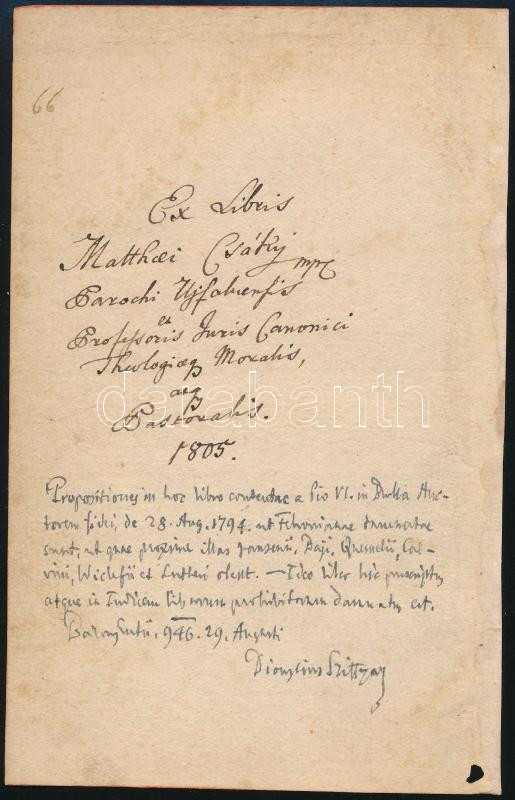 66
Ex Libris
Matthæi Csáky mpr
Parochi Ujfaluensis
et
Professoris Juris Canonici
Theologiæq Moralis,
atq
Pastoralis.
1805.
darabanth
Propositiones in hoc libro contentae a Pio VI. in Bulla Auc-
torem fidei, de 28. Aug. 1794. ut damnatae
sunt, ut quae proxime illas Jansenii, Baji, Quesnelii, Cal-
vini, Wiclefii et Lutheri olent. — Ideo liber hic proscriptus
atque in Indicem librorum prohibitorum damnatus est.
946. 29. Augusti
Dionysius